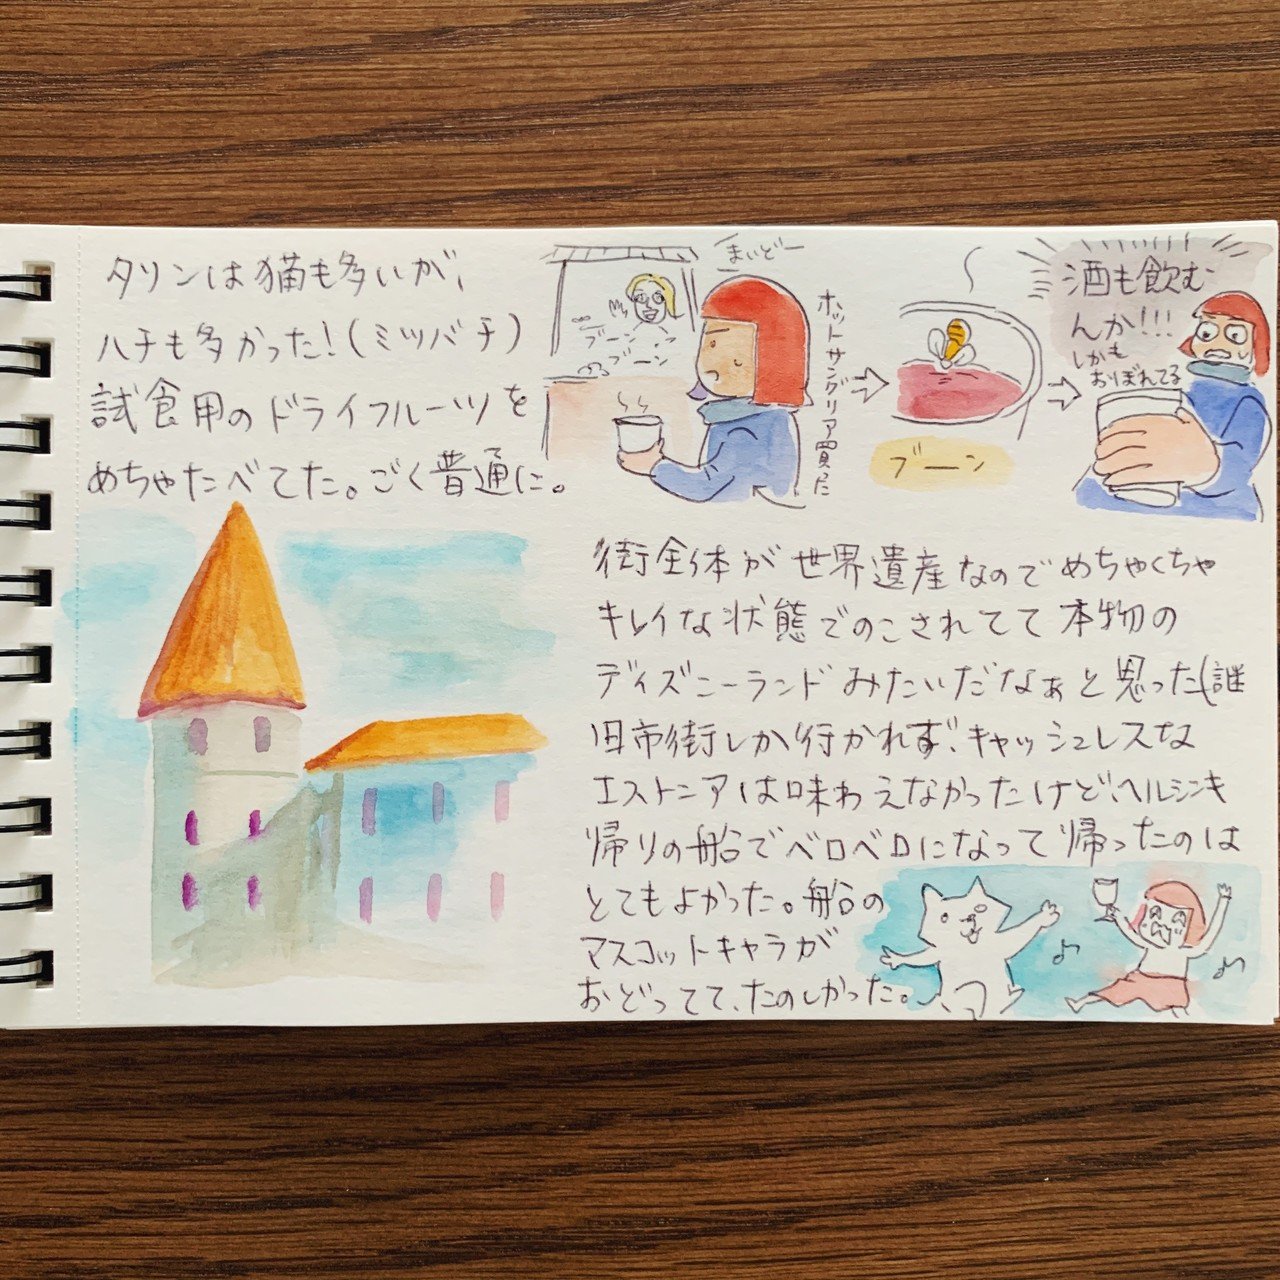 タリンは猫も多いが、
ハチも多かった!(ミツバチ)
試食用のドライフルーツを
めちゃたべてた。ごく普通に。
まいどー
ブーン
ブーン
ホットサングリア買った
ブーン
酒も飲む
んか!!!
しかも
おぼれてる
街全体が世界遺産なのでめちゃくちゃ
キレイな状態でのこされてて本物の
ディズニーランドみたいだなぁと思った(謎
旧市街しか行かれず、キャッシュレスな
エストニアは味わえなかったけど、ヘルシンキ
帰りの船でベロベロになって帰ったのは
とてもよかった。船の
マスコットキャラが
おどってて、たのしかった。